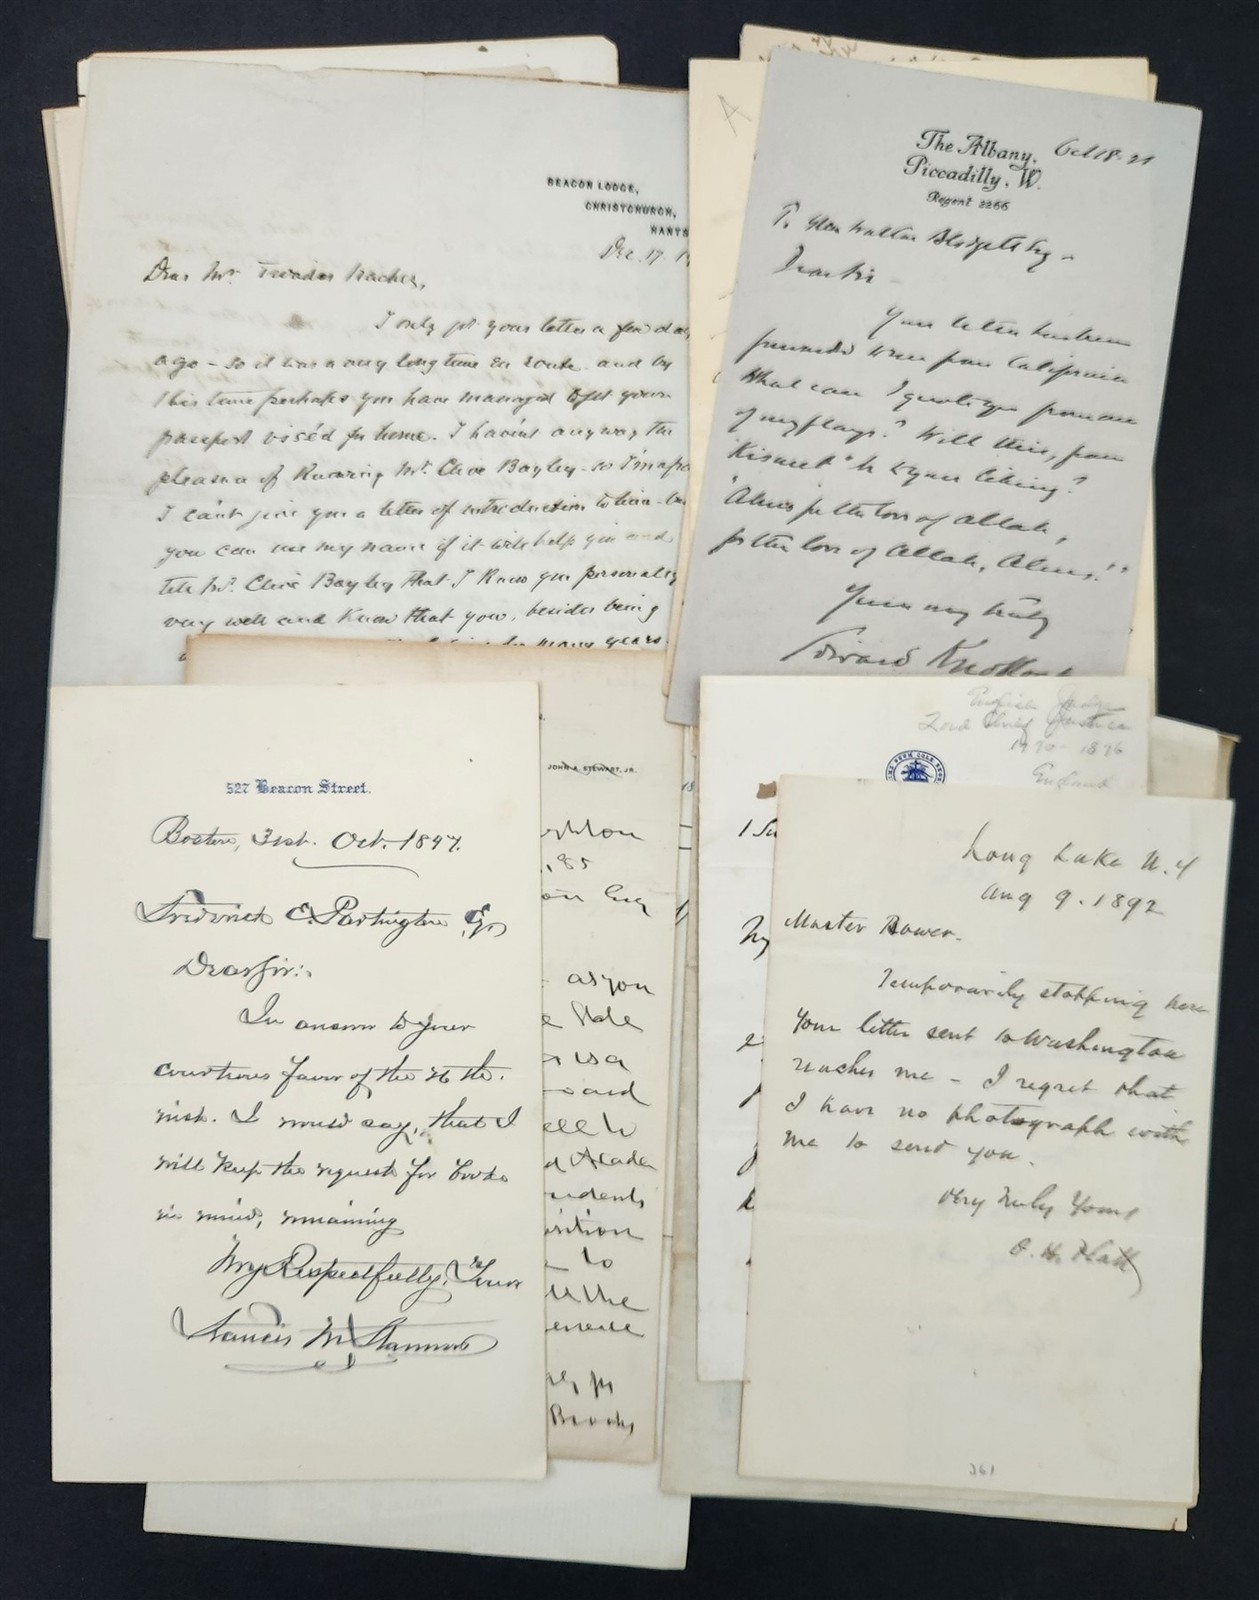 BEACON LODGE,
CHRISTCHURCH,
HANTS
Dec. 17. 1
Dear Mr.
I only got your letter a few da
ago - so it was a very long time en route. and by
this time perhaps you have managed to get your
passport visé'd for home. I haven't anyway the
pleasure of knowing Mr. Clive Bayley - so I'm afra
I can't give you a letter of introduction to him - bu
you can use my name if it will help you and
tell Mr. Clive Bayley that I know you personally
very well and know that you, besides being
many years.
A
The Albany,
Piccadilly, W.
Regent 2266
Oct 18 - 21
To Glen Walton Blodgett Esq -
Dear Sir -
Your letter has been
forwarded to me from California
What can I quote you from one
of my plays? Will this, from
"Kismet" be to your liking?
"Alms for the love of Allah,
for the love of Allah, Alms!"
Yours very truly
Edward Knoblock
527 Beacon Street.
Boston, 31st. Oct. 1897.
Frederick E. Partington Esq,
Dear Sir:
In answer to your
courteous favor of the 26 the.
inst. I would say, that I
will keep the request for books
in mind, remaining
Very Respectfully, Your
Francis M.
JOHN A. STEWART, JR.
ghton
, 85
on Esq
as you
e Mole
is a
oard
ell to
d Acade
udents
osition
to
ll the
Brooks
English Judge
Lord Chief Justice
1870 - 1876
England
18
1
2
Long Lake N.Y
Aug 9. 1892
Master Bower.
Temporarily stopping here
Your letter sent to Washington
reaches me - I regret that
I have no photograph with
me to send you.
Very Truly Yours
O. H. Platt
361